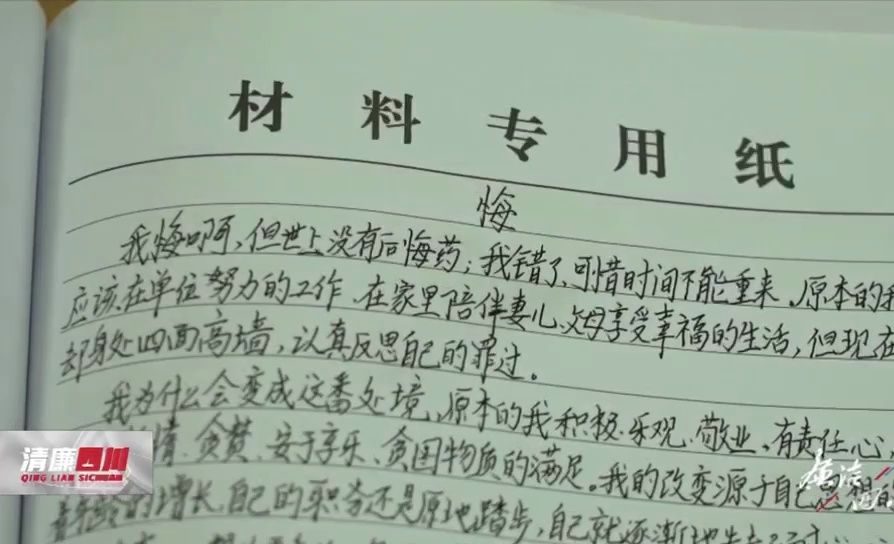 材料专用纸
悔
我悔啊,但世上没有后悔药;我错了,可惜时间不能重来。原本的我
应该在单位努力的工作、在家里陪伴妻儿、父母享受幸福的生活,但现在
却身处四面高墙,认真反思自己的罪过。
我为什么会变成这番处境,原本的我积极、乐观、敬业、有责任心,
情、贪婪、安于享乐、贪图物质的满足。我的改变源于自己思想的
年龄的增长,自己的职务还是原地踏步,自己就逐渐地
清廉四川
QING LIAN SICHUAN